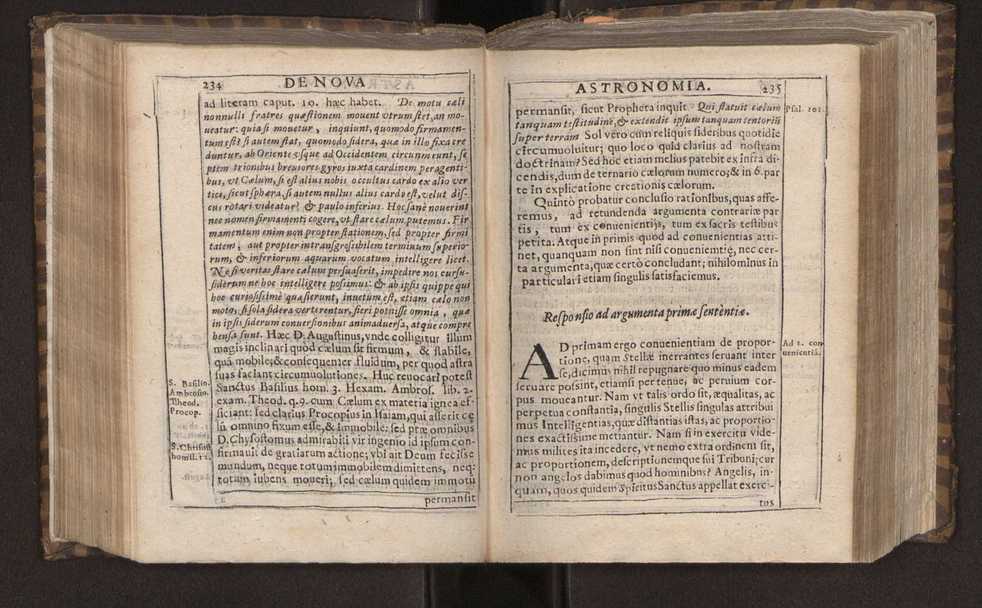 234 DE NOVA
ad literam caput. 10. hæc habet. De motu cæli
nonnulli fratres quæstionem mouent vtrum stet, an mo-
ueatur: quia si mouetur, inquiunt, quomodo firmamen-
tum est? si autem stat, quomodo sidera, quæ in illo fixa cre
duntur, ab Oriente vsque ad Occidentem circumeunt, se
ptem trionibus breuiores gyros iuxta cardinem peragenti-
bus, vt Cælum, si est alius nobis occultus cardo ex alio ver
tice, sicut sphæra, si autem nullus alius cardo est, velut dis-
cus rotari videatur? & paulo inferius. Hoc sanè nouerint
nec nomen firmamenti cogere, vt stare cælum putemus. Fir
mamentum enim non propter stationem, sed propter firmi
tatem, aut propter intransgressibilem terminum superio-
rum, & inferiorum aquarum vocatum intelligere licet.
Ne si veritas stare cælum persuaserit, impedire nos cursu-
siderum ne hoc intelligere possimus: & ab ipsis quippe qui
hoc curiosissimè quæsierunt, inuetum est, etiam cælo non
moto, si sola sidera verterentur, fieri potuisse omnia, quæ
in ipsis siderum conuersionibus animaduersa, atque compre
hensa sunt. Hæc D. Augustinus, vnde colligitur illum
magis inclinari quòd cælum sit firmum, & stabile,
quã mobile; & consequenter fluidum, per quod astra
suas faciant circumuolutiones. Huc reuocari potest
Sanctus Basilius hom. 3. Hexam. Ambros. lib. 2.
exam. Theod. q. 9. cum Cælum ex materia ignea ef-
ficiant: sed clarius Procopius in Isaiam, qui asserit cę
lũ omnino fixum esse, & immobile: sed præ omnibus
D. Chrysostomus admirabili vir ingenio id ipsum con-
firmauit de gratiarum actione; vbi ait Deum fecisse
mundum, neque totum immobilem dimittens, neq;
totum iubens moueri; sed cælum quidem immotũ
permansit
S. Basilio.
Ambrosio.
Theod.
Procop.
S. Chrisost
homil. 12.
ASTRONOMIA. 235
permansit, sicut Propheta inquit. Qui statuit cælum
tanquam testitudinẽ, & extendit ipsum tanquam tentoriũ
super terram Sol verò cum reliquis sideribus quotidie
circumuoluitur; quo loco quid clarius ad nostram
doctrinam? Sed hoc etiam melius patebit ex infra di
cendis, dum de ternario cælorum numero; & in 6. par
te in explicatione creationis cælorum.
Quintò probatur conclusio rationibus, quas affe-
remus, ad retundenda argumenta contrariæ par
tis, tum ex conuenientijs, tum ex sacris testibus
petita. Atque in primis quod ad conuenientias atti-
net, quanquam non sint nisi conuenientiæ, nec cer-
ta argumenta, quæ certò concludant; nihilominus in
particulari etiam singulis satisfaciemus.
Responsio ad argumenta primæ sentẽntiæ.
AD primam ergo conuenientiam de propor-
tione, quam Stellæ inerrantes seruant inter
se, dicimus nihil repugnare quo minus eadem
seruare possint, etiamsi per tenue, ac peruium cor-
pus moueantur. Nam vt talis ordo sit, æqualitas, ac
perpetua constantia, singulis Stellis singulas attribui
mus Intelligentias, quæ distantias istas, ac proportio-
nes exactissime metiantur. Nam si in exercitu vide-
mus milites ita incedere, vt nemo extra ordinem sit,
ac proportionem, descriptionemque sui Tribuni; cur
non angelos dabimus quod hominibus? Angelis, in-
quam, quos quidem Spiritus Sanctus appellat exerci-
tus
Psal. 101.
Ad 1. con
uenientiã.